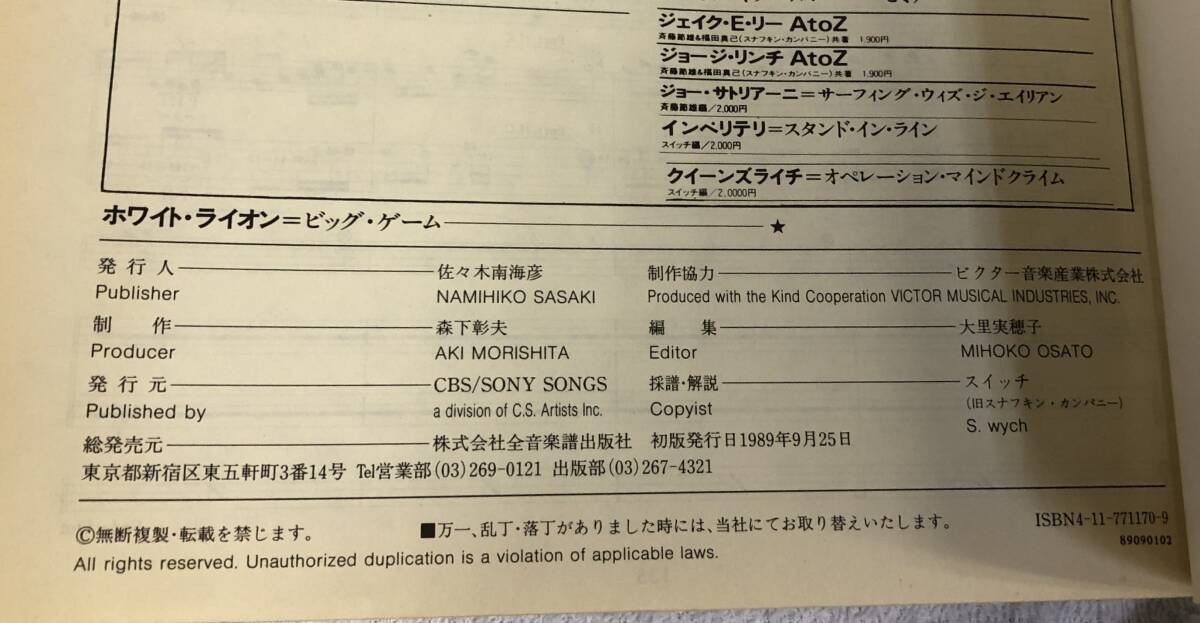 ジェイク・E・リー AtoZ
斉藤節雄&福田真己(スナフキン・カンパニー)共著 1,900円
ジョージ・リンチ AtoZ
斉藤節雄&福田真己(スナフキン・カンパニー)共著 1,900円
ジョー・サトリアーニ=サーフィング・ウィズ・ジ・エイリアン
斉藤節雄編/2,000円
インペリテリ=スタンド・イン・ライン
スイッチ編/2,000円
クイーンズライチ=オペレーション・マインドクライム
スイッチ編/2,0000円
ホワイト・ライオン=ビッグ・ゲーム ★
発行人 佐々木南海彦
Publisher NAMIHIKO SASAKI
制作 森下彰夫
Producer AKI MORISHITA
発行元 CBS/SONY SONGS
Published by a division of C.S. Artists Inc.
制作協力 ビクター音楽産業株式会社
Produced with the Kind Cooperation VICTOR MUSICAL INDUSTRIES, INC.
編集 大里実穂子
Editor MIHOKO OSATO
採譜・解説 スイッチ
(旧スナフキン・カンパニー)
Copyist S. wych
総発売元 株式会社全音楽譜出版社 初版発行日1989年9月25日
東京都新宿区東五軒町3番14号 Tel営業部(03)269-0121 出版部(03)267-4321
©無断複製・転載を禁じます。 ■万一、乱丁・落丁がありました時には、当社にてお取り替えいたします。
All rights reserved. Unauthorized duplication is a violation of applicable laws.
ISBN4-11-771170-9
89090102